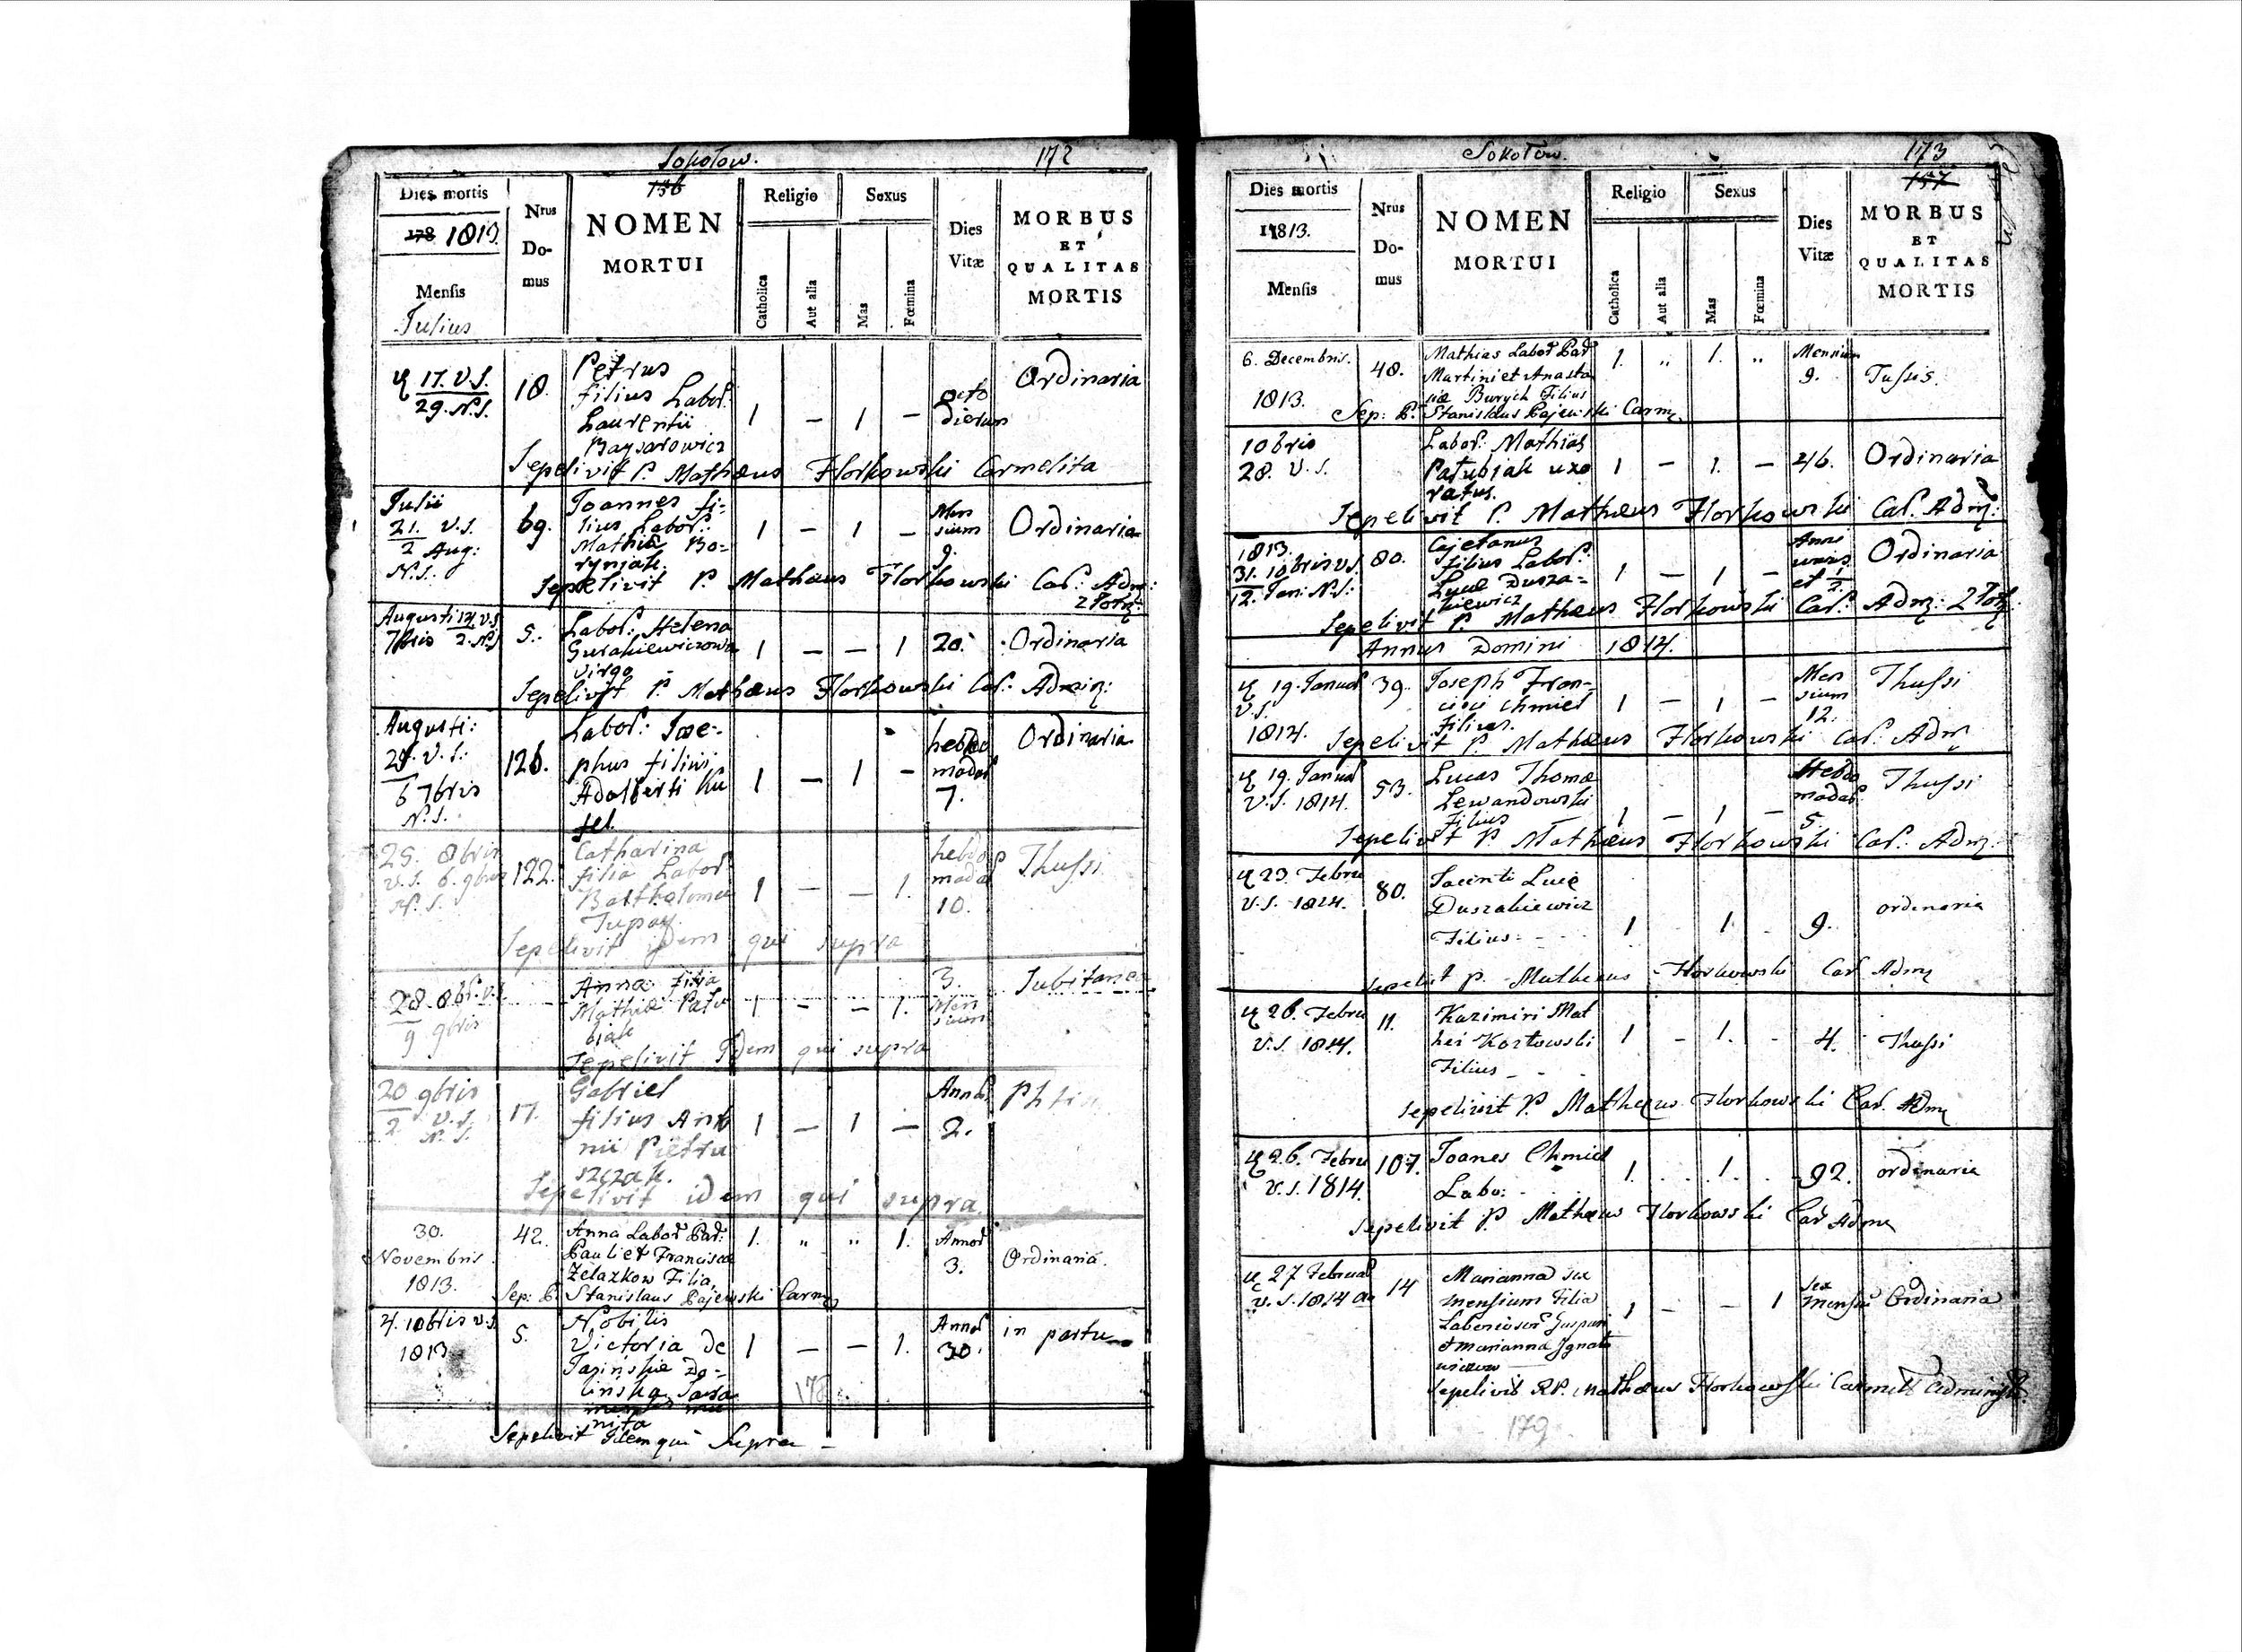 Sokołow. 172
Dies mortis
178 1813.
Mensis
Julius
Nrus
Do-
mus
136
NOMEN
MORTUI
Religio
Catholica
Aut alia
Sexus
Mas
Fœmina
Dies
Vitæ
MORBUS
ET
QUALITAS
MORTIS
17. V.S.
29. N.S.
18.
Petrus
filius Labor:
Laurentii
1 — 1 —
octo
dierum
Ordinaria
Sepelivit P. Mathæus Florkowski Carmelita
Julii
21. V.S.
2 Aug:
N.S.
69.
Joannes fi-
lius Labor:
Mathiæ Bo-
ryniak.
1 — 1 —
Men
sium
9.
Ordinaria
Sepelivit P. Mathæus Florkowski Car: Adm:
Augusti 14 V.S.
7bris 2. N.S.
5.
Labor: Helena
Gurakiewiczowa
virgo
1 — — 1
20.
Ordinaria
Sepelivit P. Mathæus Florkowski Car: Admin:
Augusti:
25. V.S.
6 7bris
N.S.
126.
Labor: Jose-
phus filius
Adalberti Ku
1 — 1 —
hebdo
madar
7.
Ordinaria
25. 8bris
V.S. 6. 9bris
N.S.
122.
Catharina
filia Labor:
Bartholomei
1 — — 1.
hebdo
madar
10.
Thussi
Sepelivit idem qui supra
28. 8br. v.s.
9 9bris
Anna filia
Mathiæ Patu
biak
1 — — 1.
3.
Men
sium
Subitanea
Sepelivit Idem qui supra
20 9bris
V.S.
2
N.S.
17.
Gabriel
filius Anto
nii Pietru
szczak.
1 — 1 —
Annor
2.
Phtisi
Sepelivit idem qui supra
30.
Novembris
1813.
42.
Anna Labor Par:
Pauli et Franciscæ
Zelazkow Filia
1. " " 1.
Annor
3.
Ordinaria.
Sep: P. Stanislaus Gajewski Carm
4. 10bris v.s.
1813
5.
Nobilis
Victoria de
Jasińskie Zo-
linska Sacra
mentis mu
nita
1 — — 1.
Annor
30.
in partu
178
Sepelivit Idem qui Supra —
Sokołow. 173
Dies mortis
1813.
Mensis
Nrus
Do-
mus
NOMEN
MORTUI
Religio
Catholica
Aut alia
Sexus
Mas
Fœmina
Dies
Vitæ
157
MORBUS
ET
QUALITAS
MORTIS
6. Decembris.
1813.
48.
Mathias Labor Par
Martini et Anasta
siæ Burych Filius
1. " 1. "
Mensium
9.
Tussis.
Sep: P. Stanislaus Gajewski Carm
10bris
28. V.S.
Labor: Mathias
Patubiak uxo
ratus.
1 — 1. —
46.
Ordinaria
Sepelivit P. Mathæus Florkowski Car: Adm:
1813.
31. 10bris v.s.
12. Jan: N.S:
80.
Cajetanus
filius Labor:
Lucæ Dusza-
kiewicz
1 — 1 —
Anni
unius
et 1/2
Ordinaria
Sepelivit P. Mathæus Florkowski Car: Adm:
Annus Domini 1814.
19. Januar
V.S.
1814.
39.
Joseph Fran-
cisci Chmiel
Filius.
1 — 1 —
Men
sium
12.
Thussi
Sepelivit P. Mathæus Florkowski Car: Adm
19. Januar
V.S. 1814.
53.
Lucas Thomæ
Lewandowski
Filius
1 — 1 —
Hebdo
madar
5.
Thussi
Sepelivit P. Mathæus Florkowski Car: Adm:
23. Febru
V.S. 1814.
80.
Jacinti Lucæ
Duszakiewicz
Filius
1 1
9.
ordinaria
Sepelivit P. Mathæus Florkowski Car Adm
26. Febru
V.S. 1814.
11.
Kazimiri Mat
hei Kozłowski
Filius
1 — 1. —
4.
Thussi
Sepelivit P. Mathæus Florkowski Car. Adm
26. Febru
V.S. 1814.
107.
Joanes Chmiel
Labo:
1. 1.
92.
ordinaria
Sepelivit P. Mathæus Florkowski Car Adm
27 Februar
V.S. 1814
14
Marianna sex
mensium Filia
Laboriosor Gaspari
et Marianna Ignato
wiczow
1 — — 1
Sex
mensiu
Ordinaria
Sepelivit RP. Mathæus Florkowski Carmelit
179